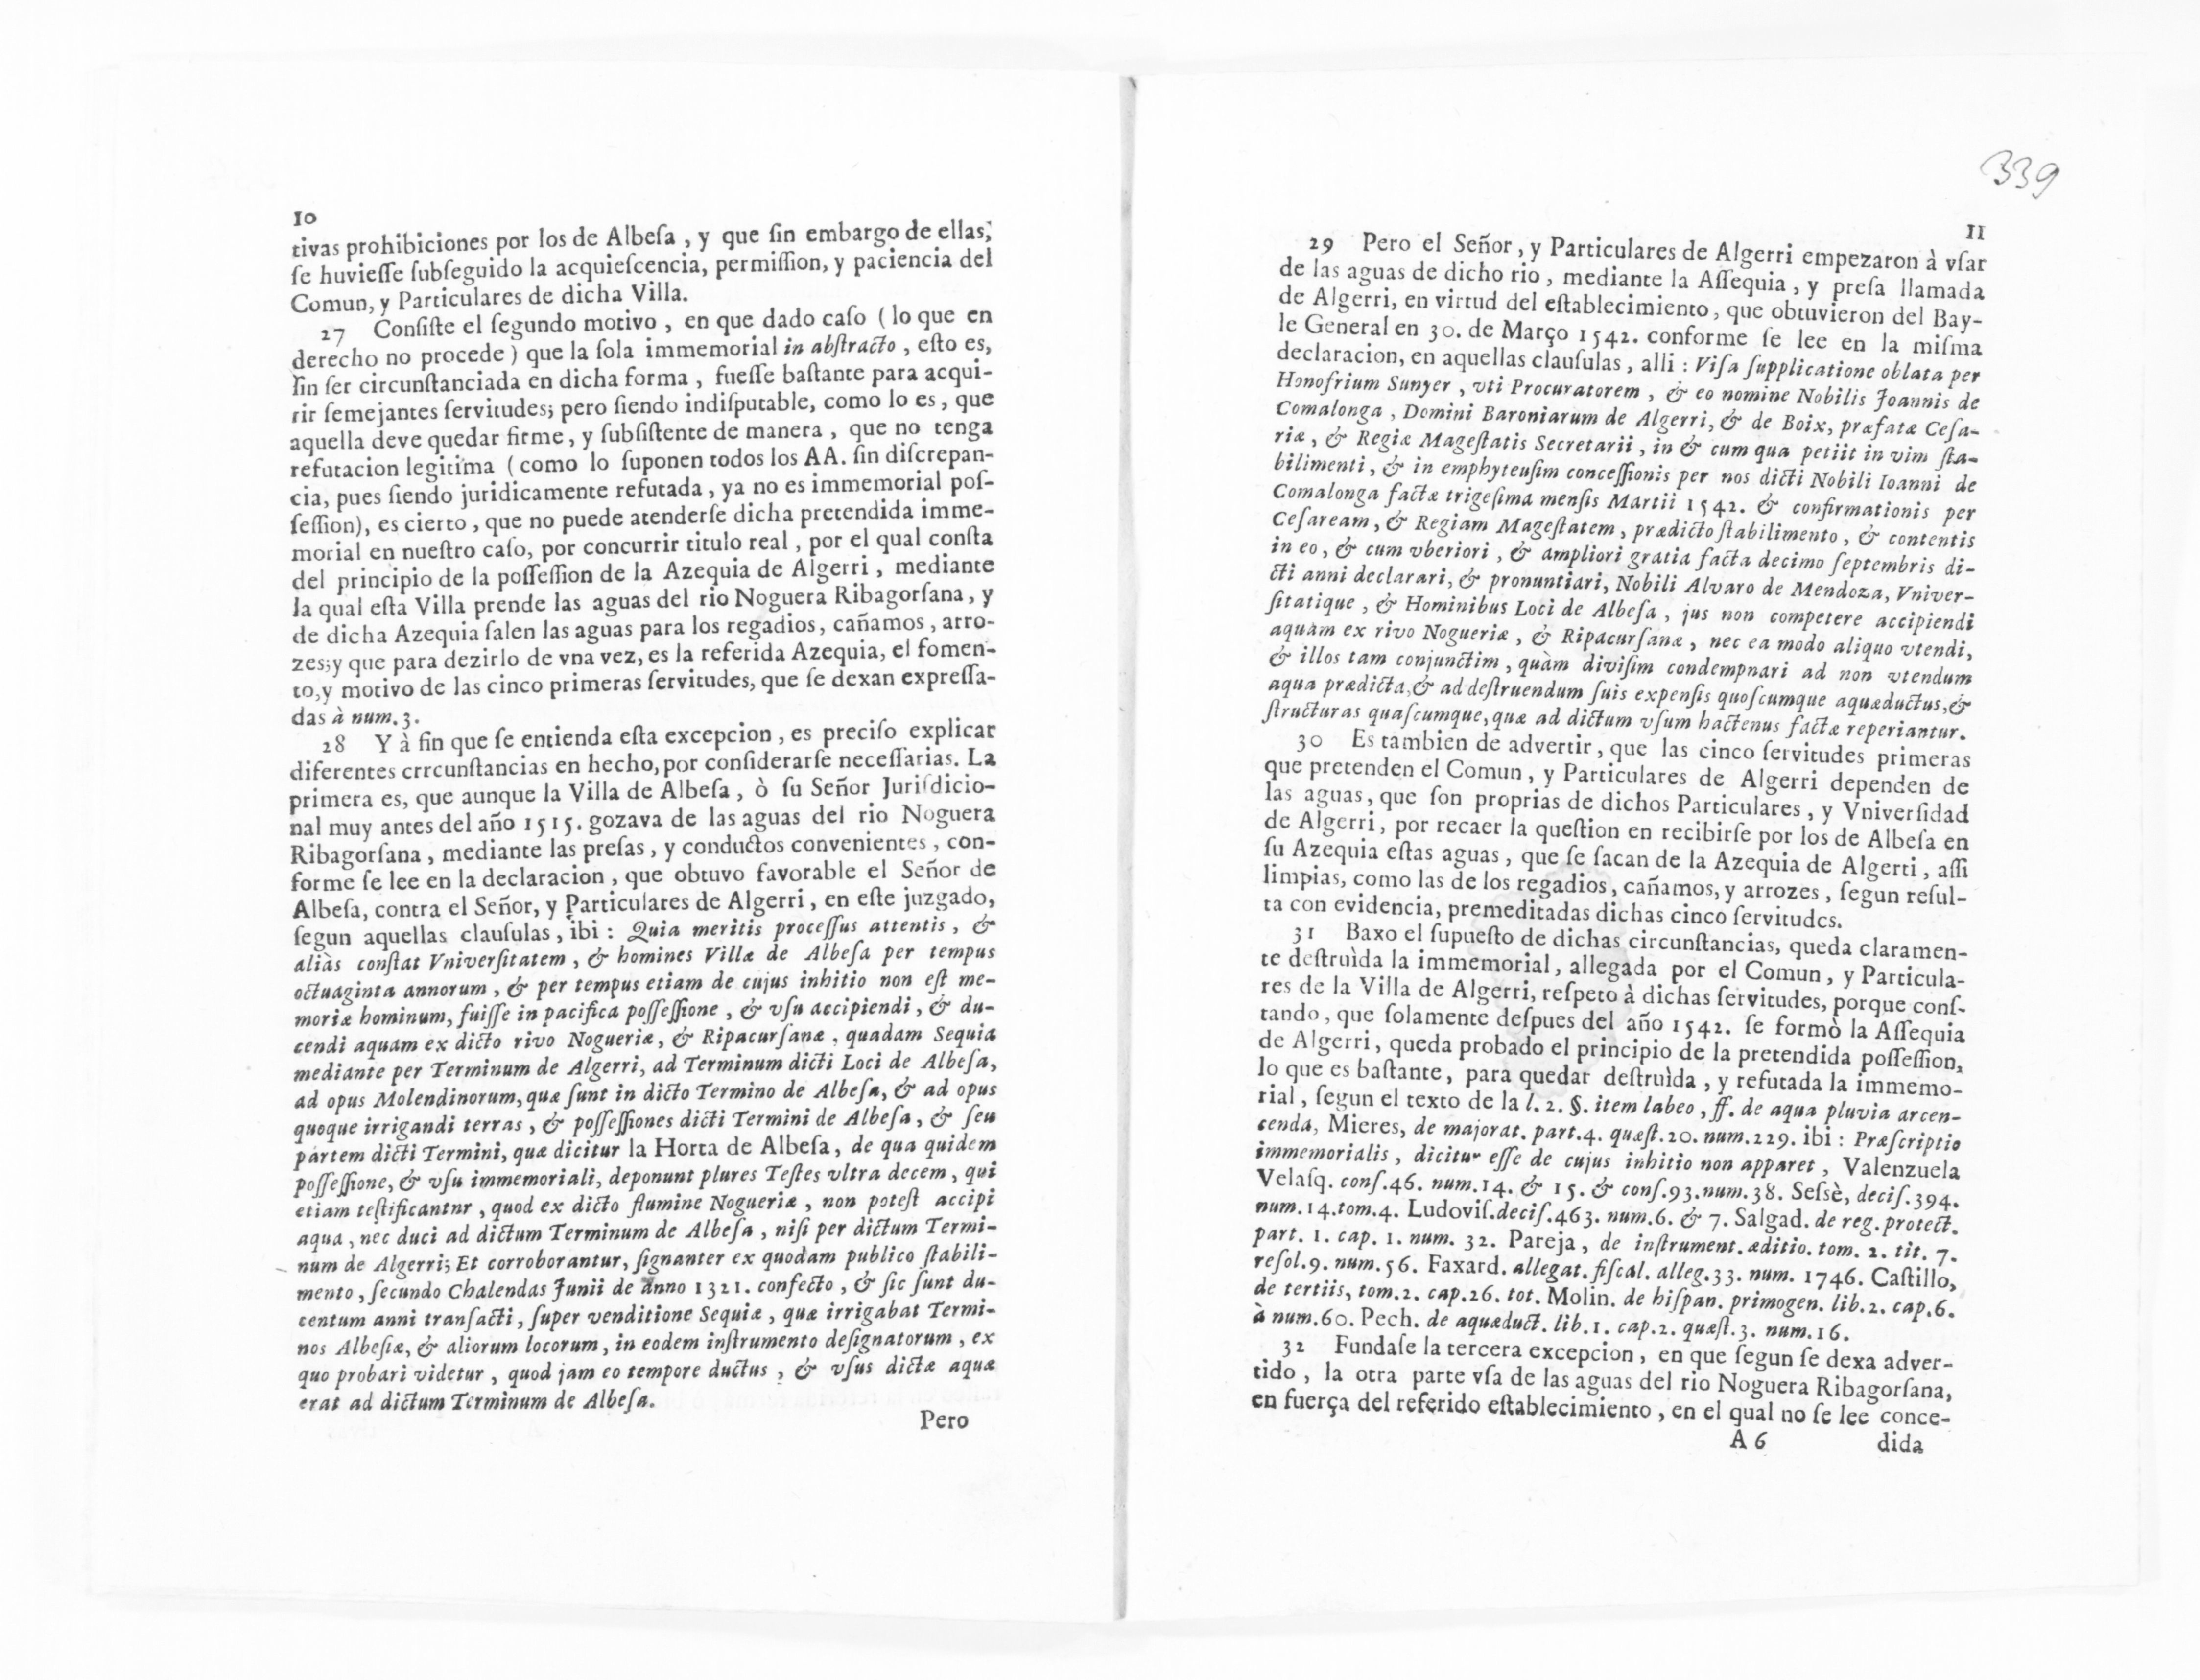 10
tivas prohibiciones por los de Albeſa , y que ſin embargo de ellas;
ſe huvieſſe ſubſeguido la acquieſcencia, permiſſion, y paciencia del
Comun, y Particulares de dicha Villa.
27 Conſiſte el ſegundo motivo , en que dado caſo ( lo que en
derecho no procede ) que la ſola immemorial in abſtracto , eſto es,
ſin ſer circunſtanciada en dicha forma , fueſſe baſtante para acqui-
rir ſemejantes ſervitudes; pero ſiendo indiſputable, como lo es , que
aquella deve quedar firme, y ſubſiſtente de manera , que no tenga
refutacion legitima ( como lo ſuponen todos los AA. ſin diſcrepan-
cia, pues ſiendo juridicamente refutada , ya no es immemorial poſ-
ſeſſion), es cierto , que no puede atenderſe dicha pretendida imme-
morial en nueſtro caſo, por concurrir titulo real , por el qual conſta
del principio de la poſſeſſion de la Azequia de Algerri , mediante
la qual eſta Villa prende las aguas del rio Noguera Ribagorſana , y
de dicha Azequia ſalen las aguas para los regadios, cañamos , arro-
zes;y que para dezirlo de vna vez, es la referida Azequia, el fomen-
to,y motivo de las cinco primeras ſervitudes, que ſe dexan expreſſa-
das à num.3.
28 Y à fin que ſe entienda eſta excepcion , es preciſo explicar
diferentes crrcunſtancias en hecho, por conſiderarſe neceſſarias. La
primera es, que aunque la Villa de Albeſa , ò ſu Señor Juriſdicio-
nal muy antes del año 1515. gozava de las aguas del rio Noguera
Ribagorſana , mediante las preſas , y conductos convenientes , con-
forme ſe lee en la declaracion , que obtuvo favorable el Señor de
Albeſa, contra el Señor, y Particulares de Algerri , en eſte juzgado,
ſegun aquellas clauſulas , ibi : Quia meritis proceſſus attentis , &
aliàs conſtat Vniverſitatem , & homines Villæ de Albeſa per tempus
octuaginta annorum , & per tempus etiam de cujus inhitio non eſt me-
moriæ hominum, fuiſſe in pacifica poſſeſſione , & vſu accipiendi , & du-
cendi aquam ex dicto rivo Nogueriæ, & Ripacurſanæ , quadam Sequia
mediante per Terminum de Algerri, ad Terminum dicti Loci de Albeſa,
ad opus Molendinorum, quæ ſunt in dicto Termino de Albeſa, & ad opus
quoque irrigandi terras , & poſſeſſiones dicti Termini de Albeſa , & ſeu
partem dicti Termini, quæ dicitur la Horta de Albeſa, de qua quidem
poſſeſſione, & vſu immemoriali, deponunt plures Teſtes vltra decem , qui
etiam teſtificantnr , quod ex dicto flumine Nogueriæ , non poteſt accipi
aqua , nec duci ad dictum Terminum de Albeſa , niſi per dictum Termi-
num de Algerri; Et corroborantur, ſignanter ex quodam publico ſtabili-
mento , ſecundo Chalendas Junii de anno 1321. confecto , & ſic ſunt du-
centum anni tranſacti , ſuper venditione Sequiæ , quæ irrigabat Termi-
nos Albeſiæ, & aliorum locorum, in eodem inſtrumento deſignatorum , ex
quo probari videtur , quod jam eo tempore ductus , & vſus dictæ aquæ
erat ad dictum Terminum de Albeſa.
Pero
339
11
29 Pero el Señor , y Particulares de Algerri empezaron à vſar
de las aguas de dicho rio , mediante la Aſſequia , y preſa llamada
de Algerri, en virtud del eſtablecimiento , que obtuvieron del Bay-
le General en 30. de Março 1542. conforme ſe lee en la miſma
declaracion, en aquellas clauſulas , alli : Viſa ſupplicatione oblata per
Honofrium Sunyer , vti Procuratorem , & eo nomine Nobilis Joannis de
Comalonga , Domini Baroniarum de Algerri, & de Boix, præfatæ Ceſa-
riæ , & Regiæ Mageſtatis Secretarii , in & cum qua petiit in vim ſta-
bilimenti , & in emphyteuſim conceſſionis per nos dicti Nobili Ioanni de
Comalonga factæ trigeſima menſis Martii 1542. & confirmationis per
Ceſaream , & Regiam Mageſtatem , prædicto ſtabilimento , & contentis
in eo , & cum vberiori , & ampliori gratia facta decimo ſeptembris di-
cti anni declarari, & pronuntiari, Nobili Alvaro de Mendoza, Vniver-
ſitatique , & Hominibus Loci de Albeſa , jus non competere accipiendi
aquam ex rivo Nogueriæ , & Ripacurſanæ , nec ea modo aliquo vtendi,
& illos tam conjunctim , quàm diviſim condempnari ad non vtendum
aqua prædicta,& ad deſtruendum ſuis expenſis quoſcumque aquæductus,&
ſtructuras quaſcumque, quæ ad dictum vſum hactenus factæ reperiantur.
30 Es tambien de advertir , que las cinco ſervitudes primeras
que pretenden el Comun , y Particulares de Algerri dependen de
las aguas , que ſon proprias de dichos Particulares , y Vniverſidad
de Algerri , por recaer la queſtion en recibirſe por los de Albeſa en
ſu Azequia eſtas aguas , que ſe ſacan de la Azequia de Algerri , aſſi
limpias, como las de los regadios, cañamos, y arrozes , ſegun reſul-
ta con evidencia, premeditadas dichas cinco ſervitudes.
31 Baxo el ſupueſto de dichas circunſtancias, queda claramen-
te deſtruìda la immemorial , allegada por el Comun , y Particula-
res de la Villa de Algerri, reſpeto à dichas ſervitudes, porque conſ-
tando , que ſolamente deſpues del año 1542. ſe formò la Aſſequia
de Algerri , queda probado el principio de la pretendida poſſeſſion,
lo que es baſtante, para quedar deſtruìda , y refutada la immemo-
rial , ſegun el texto de la l. 2. §. item labeo , ff. de aqua pluvia arcen-
cenda, Mieres, de majorat. part.4. quæſt.20. num.229. ibi : Præſcriptio
immemorialis , dicitur eſſe de cujus inhitio non apparet , Valenzuela
Velaſq. conſ.46. num.14. & 15. & conſ.93.num.38. Seſsè, deciſ.394.
num.14.tom.4. Ludoviſ.deciſ.463. num.6. & 7. Salgad. de reg. protect.
part. 1. cap. 1. num. 32. Pareja , de inſtrument. æditio. tom. 2. tit. 7.
reſol.9. num.56. Faxard. allegat. fiſcal. alleg.33. num. 1746. Caſtillo,
de tertiis, tom.2. cap.26. tot. Molin. de hiſpan. primogen. lib.2. cap.6.
à num.60. Pech. de aquæduct. lib.1. cap.2. quæſt.3. num.16.
32 Fundaſe la tercera excepcion , en que ſegun ſe dexa adver-
tido , la otra parte vſa de las aguas del rio Noguera Ribagorſana,
en fuerça del referido eſtablecimiento , en el qual no ſe lee conce-
A 6 dida